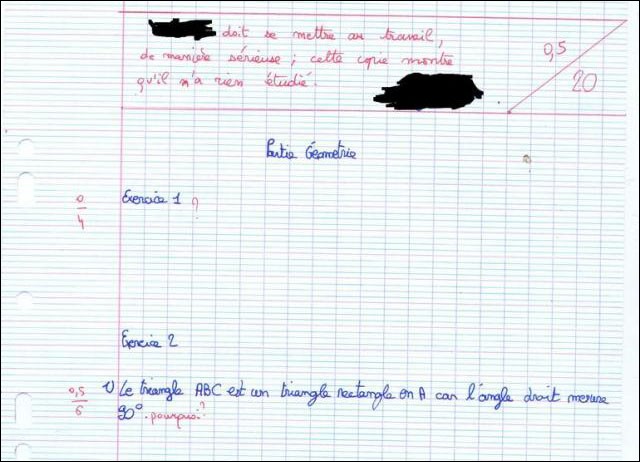 doit se mettre au travail,
de manière sérieuse ; cette copie montre
qu'il n'a rien étudié.
0,5
20
Partie Géométrie
0
4
Exercice 1 ?
Exercice 2
0,5
6
1) Le triangle ABC est un triangle rectangle en A car l'angle droit mesure
90°. pourquoi ?